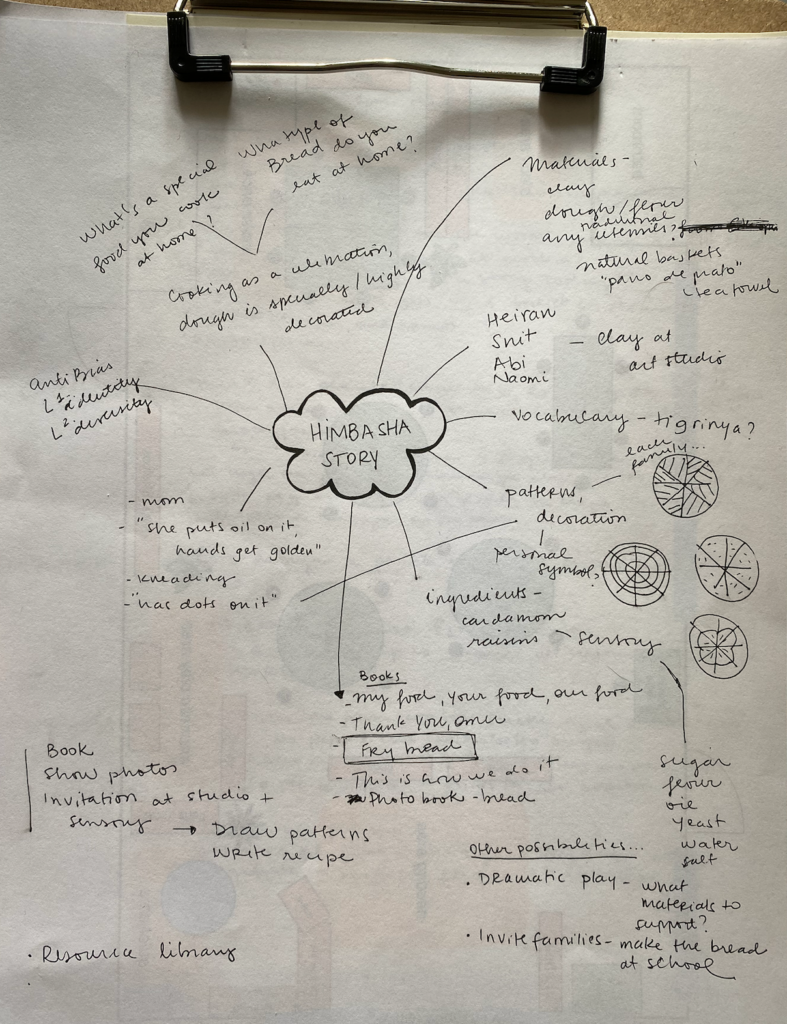 What's a special
food you cook
at home?
What type of
Bread do you
eat at home?
Cooking as a celebration,
dough is specially / highly
decorated
Materials -
clay
dough / flour
traditional
any utensils,
natural baskets
"pano de prato"
tea towel
Heiran
Snit
Abi
Naomi
- clay at
art studio
AntiBias
L 1- identity
L 2- diversity
HIMBASHA
STORY
vocabulary - tigrinya?
each
family...
patterns,
decoration
personal
symbol?
- mom
- "she puts oil on it,
hands get golden"
- kneading
- "has dots on it"
ingredients -
cardamom
raisins - sensory
Books
- My food, your food, our food
- Thank you, Omu
- Fry bread
- This is how we do it
- Photo book - bread
sugar
flour
oil
yeast
water
salt
Book
Show photos
Invitation at studio +
sensory → Draw patterns
Write recipe
Other possibilities...
• Dramatic play - what
materials to
support?
• Invite families - make the bread
at school
• Resource library